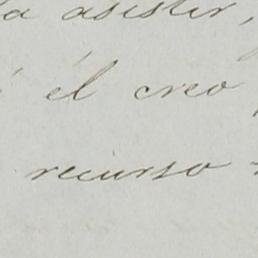 la asistir,
él creo
recurso